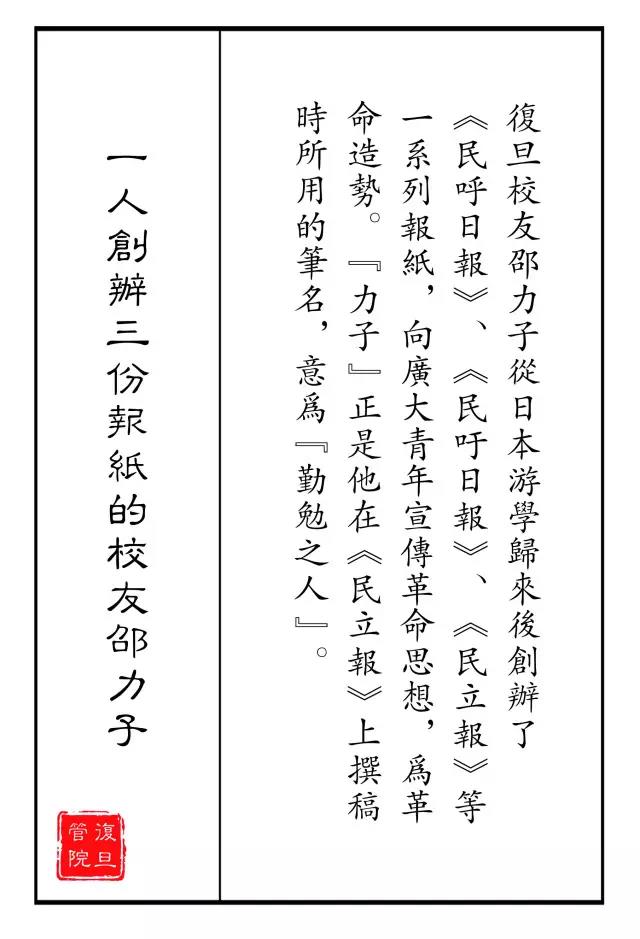 復旦校友邵力子從日本游學歸來後創辦了
《民呼日報》、《民吁日報》、《民立報》等
一系列報紙，向廣大青年宣傳革命思想，爲革
命造勢。『力子』正是他在《民立報》上撰稿
時所用的筆名，意爲『勤勉之人』。
一人創辦三份報紙的校友邵力子
復旦
管院